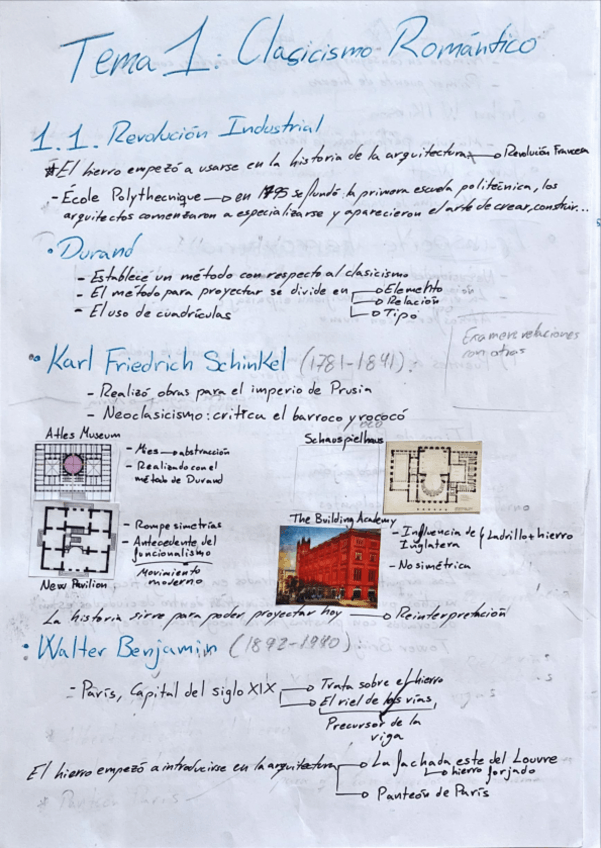 Tema 1: Clasicismo Romántico
1.1. Revolución Industrial
El hierro empezó a usarse en la historia de la arquitectura Revolución Francesa
- École Polythecnique en 1795 se fundó la primera escuela politécnica, los
arquitectos comenzaron a especializarse y aparecieron el arte de crear, construir...
• Durand
- Establece un método con respecto al clasicismo
- El método para proyectar se divide en Elemento
Relación
- El uso de cuadrículas Tipo
Examen: relaciones
con otras
• Karl Friedrich Schinkel (1781-1841).
- Realizó obras para el imperio de Prusia
- Neoclasicismo: critica el barroco y rococó
Altes Museum
- Mies abstracción
- Realizado con el
método de Durand
Schauspielhaus
- Rompe simetrías
- Antecedente del
funcionalismo
Movimiento
moderno
New Pavilion
The Building Academy
- Influencia de Ladrillo + hierro
Inglaterra
- No simétrica
La historia sirve para poder proyectar hoy Reinterpretación
• Walter Benjamin (1892-1940).
- París, Capital del siglo XIX Trata sobre el hierro
El riel de las vías,
Precursor de la
viga
El hierro empezó a introducirse en la arquitectura La fachada este del Louvre
hierro forjado
Panteón de París